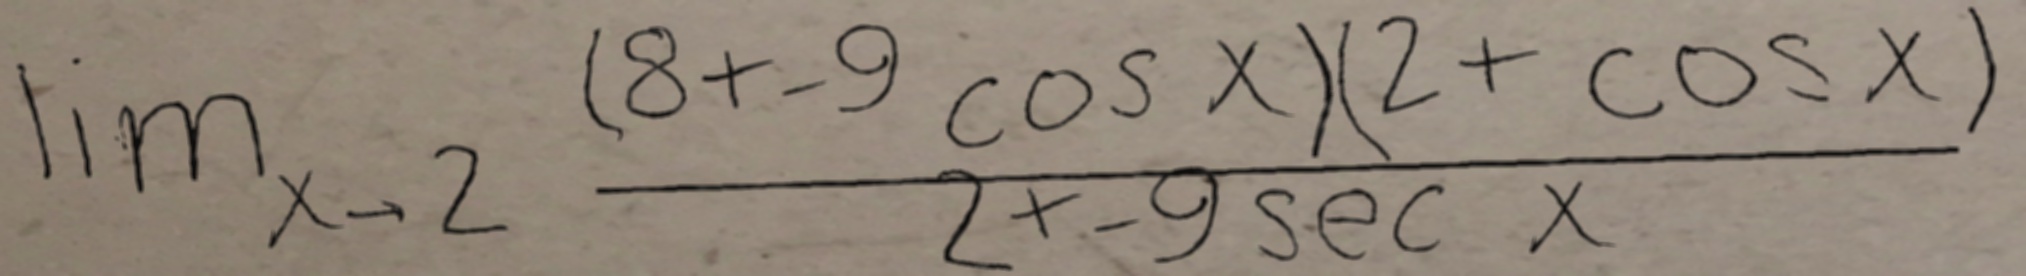 lim x→2 (8+-9 cos x)(2+ cos x)
2+-9 sec x